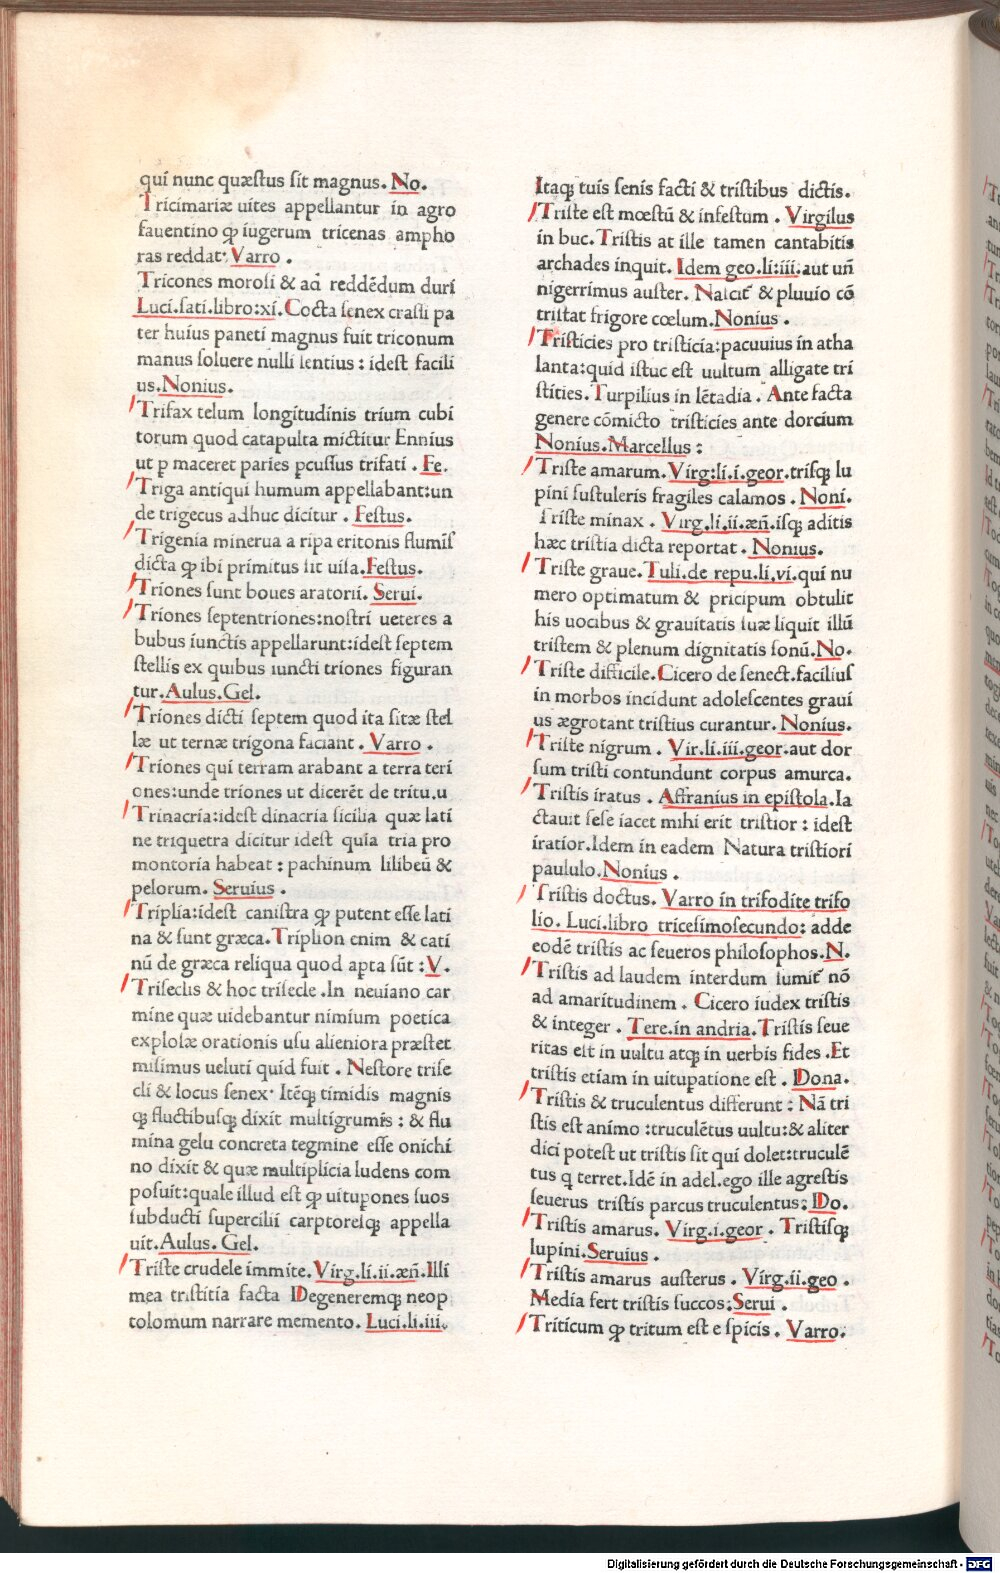 qui nunc quæstus sit magnus. No.
Tricimariæ uites appellantur in agro
fauentino ꝙ iugerum tricenas ampho
ras reddat: Varro .
Tricones morosi & ad reddēdum duri
Luci.sati.libro:xi. Cocta senex crassi pa
ter huius paneti magnus fuit triconum
manus soluere nulli lentius : idest facili
us.Nonius.
Trifax telum longitudinis trium cubi
torum quod catapulta mictitur Ennius
ut p maceret paries pcussus trifati . Fe.
Triga antiqui humum appellabant:un
de trigecus adhuc dicitur . Festus.
Trigenia minerua a ripa eritonis flumīs
dicta ꝙ ibi primitus sit uisa.Festus.
Triones sunt boues aratorii. Serui.
Triones septentriones:nostri ueteres a
bubus iunctis appellarunt:idest septem
stellis ex quibus iuncti triones figuran
tur.Aulus.Gel.
Triones dicti septem quod ita sitæ stel
læ ut ternæ trigona faciant . Varro .
Triones qui terram arabant a terra teri
ones:unde triones ut dicerēt de tritu.u
Trinacria:idest dinacria sicilia quæ lati
ne triquetra dicitur idest quia tria pro
montoria habeat : pachinum lilibeū &
pelorum. Seruius .
Triplia:idest canistra ꝙ putent esse lati
na & sunt græca.Triplion enim & cati
nū de græca reliqua quod apta sūt : V.
Triseclis & hoc trisecle .In neuiano car
mine quæ uidebantur nimium poetica
explosæ orationis usu alieniora præstet
misimus ueluti quid fuit . Nestore trise
cli & locus senex· Itēꝗ timidis magnis
ꝗ fluctibusꝗ dixit multigrumis : & flu
mina gelu concreta tegmine esse onichi
no dixit & quæ multiplicia ludens com
posuit:quale illud est ꝙ uitupones suos
subducti supercilii carptoresꝗ appella
uit.Aulus. Gel.
Triste crudele immite. Virg.li.ii.æn̄.Illi
mea tristitia facta Degeneremꝗ neop
tolomum narrare memento. Luci.li.iii.
Itaꝗ tuis senis facti & tristibus dictis.
Triste est mœstū & infestum . Virgilus
in buc.Tristis at ille tamen cantabitis
archades inquit. Idem geo.li:iii.aut un̄
nigerrimus auster. Nascit᷑ & pluuio cō
tristat frigore cœlum.Nonius .
Tristicies pro tristicia:pacuuius in atha
lanta:quid istuc est uultum alligate tri
stities. Turpilius in lētadia . Ante facta
genere cōmicto tristicies ante dorcium
Nonius.Marcellus :
Triste amarum. Virg:li.i.geor.trisꝗ lu
pini sustuleris fragiles calamos . Noni.
Triste minax . Virg.li.ii.æn̄.isꝗ aditis
hæc tristia dicta reportat . Nonius.
Triste graue. Tuli.de repu.li.vi.qui nu
mero optimatum & pricipum obtulit
his uocibus & grauitatis suæ liquit illū
tristem & plenum dignitatis sonū.No.
Triste difficile.Cicero de senect.faciliuſ
in morbos incidunt adolescentes graui
us ægrotant tristius curantur. Nonius.
Triste nigrum . Vir.li.iii.geor.aut dor
sum tristi contundunt corpus amurca.
Tristis iratus . Affranius in epistola.Ia
ctauit sese iacet mihi erit tristior : idest
iratior.Idem in eadem Natura tristiori
paululo.Nonius .
Tristis doctus. Varro in trifodite trifo
lio. Luci.libro tricesimosecundo: adde
eodē tristis ac seueros philosophos.N.
Tristis ad laudem interdum sumit᷑ nō
ad amaritudinem . Cicero iudex tristis
& integer . Tere.in andria.Tristis seue
ritas est in uultu atꝗ in uerbis fides .Et
tristis etiam in uitupatione est . Dona.
Tristis & truculentus differunt : Nā tri
stis est animo :truculētus uultu:& aliter
dici potest ut tristis sit qui dolet:truculē
tus q terret.Idē in adel.ego ille agrestis
seuerus tristis parcus truculentus: Do.
Tristis amarus. Virg.i.geor . Tristisꝗ
lupini.Seruius .
Tristis amarus austerus . Virg.ii.geo .
Media fert tristis succos:Serui .
Triticum ꝙ tritum est e spicis. Varro.
Digitalisierung gefördert durch die Deutsche Forschungsgemeinschaft - DFG